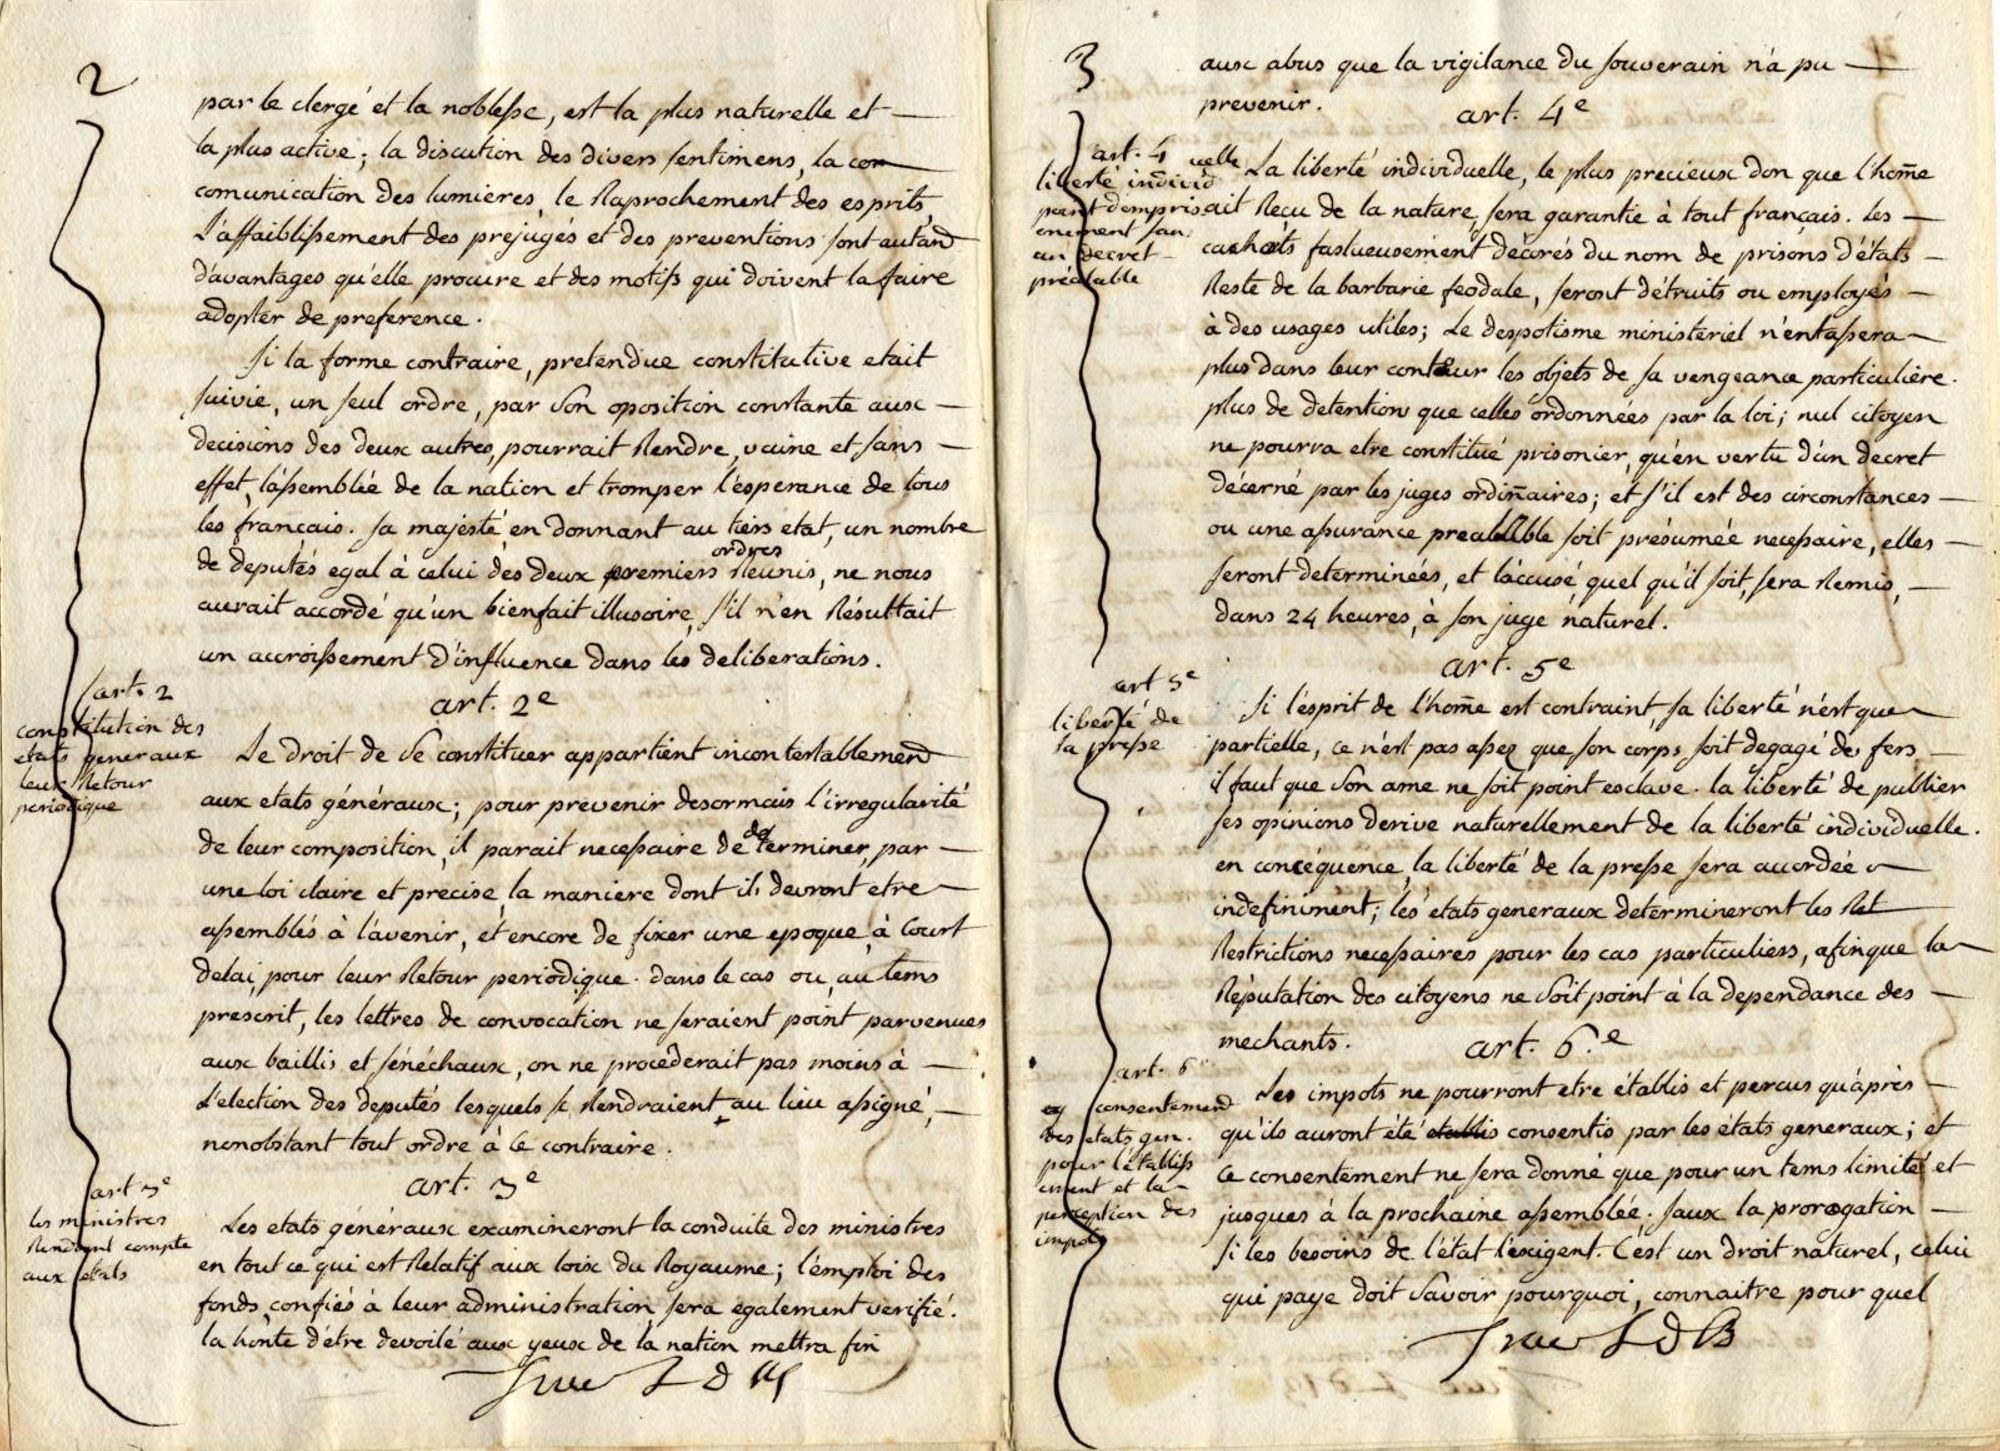 2
par le clergé et la noblesse, est la plus naturelle et
la plus active; la discution des divers sentimens, la com
comunication des lumieres, le Raprochement des esprits,
l'affaiblissement des préjugés et des preventions sont autand
d'avantages qu'elle procure et des motifs qui doivent la faire
adopter de preference.
si la forme contraire, pretendue constitutive etait
suivie, un seul ordre, par son oposition constante aux
decisions des deux autres, pourrait Rendre, vaine et sans
effet, l'assemblée de la nation et tromper l'esperance de tous
les francais. sa majesté, en donnant au tiers etat, un nombre
ordres
de deputés egal à celui des deux premiers Reunis, ne nous
aurait accordé qu'un bienfait illusoire, s'il n'en Résultait
un accroissement d'influence dans les deliberations.
art. 2
constitution des
etats generaux
leur Retour
periodique
art. 2e
Le droit de se constituer appartient incontestablemend
aux etats généraux; pour prevenir desormais l'irregularité
de leur composition, il parait necessaire de determiner, par
une loi claire et précise, la maniere dont ils devront etre
assemblés à l'avenir, et encore de fixer une epoque, à court
delai, pour leur Retour periodique. dans le cas ou, au tems
prescrit, les lettres de convocation ne seraient point parvenues
aux baillis et sénéchaux, on ne procéderait pas moins à
l'election des deputés lesquels se Rendraient au lieu assigné,
nonobstant tout ordre à ce contraire.
art 3e
les ministres
Rendront compte
aux etats
art. 3e
Les etats généraux examineront la conduite des ministres
en tout ce qui est Relatif aux loix du Royaume; l'emploi des
fonds, confiés à leur administration, sera egalement verifié.
la honte d'être devoilé aux yeux de la nation mettra fin
L D
3
aux abus que la vigilance du souverain n'a pu
prevenir.
art. 4e
art. 4
liberté individuelle
point d'empris
onnement san
un decret
préalable
La liberté individuelle, le plus precieux don que l'hom̃e
ait Reçu de la nature, sera garantie à tout français. les
cachots fastueusement décorés du nom de prisons d'états
Reste de la barbarie feodale, seront détruits ou employés
à des usages utiles; Le despotisme ministériel n'entassera
plus dans leur contour les objets de sa vengeance particulière.
plus de detentions que celles ordonnées par la loi; nul citoyen
ne pourra etre constitué prisonier, qu'en vertu d'un decret
décerné par les juges ordiñaires; et s'il est des circonstances
ou une assurance prealable soit présumée necessaire, elles
seront determinées, et l'accusé, quel qu'il soit, sera Remis,
dans 24 heures, à son juge naturel.
art 5e
liberté de
la presse
art. 5e
Si l'esprit de l'hom̃e est contraint, sa liberté n'est que
partielle, ce n'est pas assez que son corps soit degagé des fers
il faut que son ame ne soit point esclave. la liberté de publier
ses opinions derive naturellement de la liberté individuelle.
en concéquence, la liberté de la presse sera accordée
indefiniment; les etats generaux determineront les Ret
Restrictions necessaires pour les cas particuliers, afin que la
Réputation des citoyens ne soit point à la dependance des
mechants.
art. 6e
art. 6e
consentemend
des etats gen.
pour l'établiss
ement et la
perception des
impots
Les impots ne pourront etre établis et percus qu'après
qu'ils auront été etablis consentis par les états generaux; et
ce consentement ne sera donné que pour un tems limité et
jusques à la prochaine assemblée; saux la prorogation
si les besoins de l'état l'exigent. C'est un droit naturel, celui
qui paye doit savoir pourquoi, connaitre pour quel
L D B